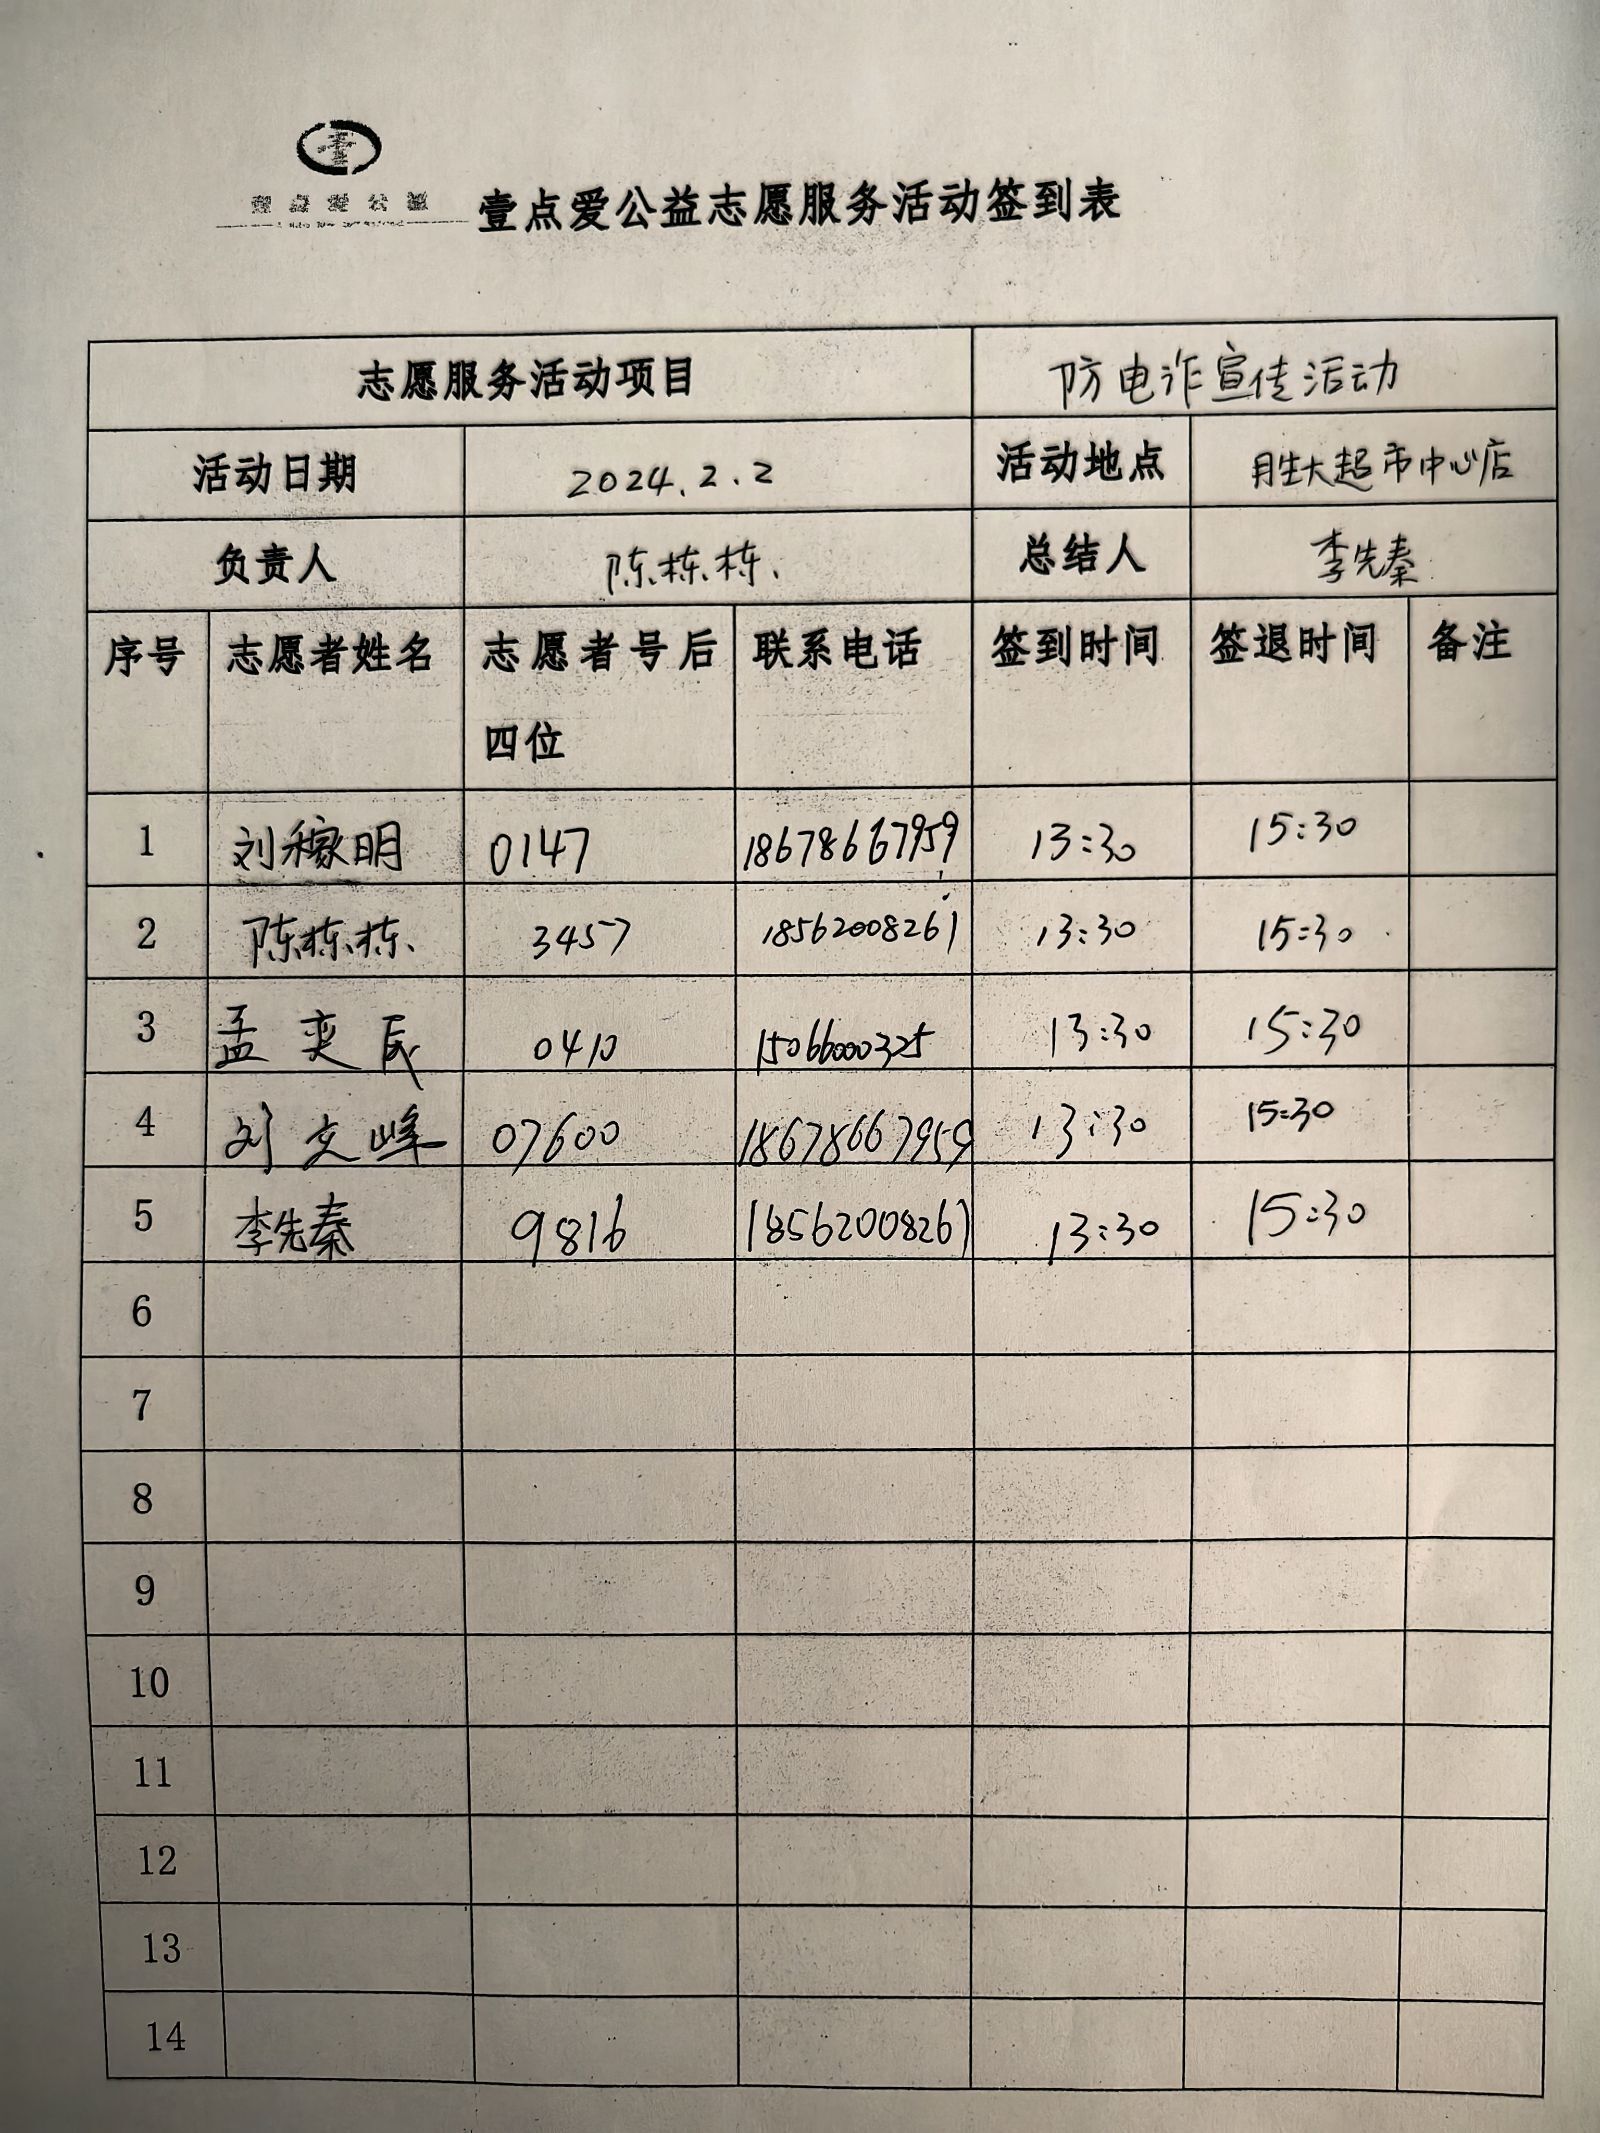 壹点爱公益
壹点爱公益志愿服务活动签到表
志愿服务活动项目 防电诈宣传活动
活动日期 2024.2.2 活动地点 胜大超市中心店
负责人 陈栋栋 总结人 李先秦
序号 志愿者姓名 志愿者号后四位 联系电话 签到时间 签退时间 备注
1 刘稼明 0147 18678667959 13:30 15:30
2 陈栋栋 3457 18562008261 13:30 15:30
3 孟奕辰 0410 15066000325 13:30 15:30
4 刘文峰 07600 18678667959 13:30 15:30
5 李先秦 9816 18562008261 13:30 15:30
6
7
8
9
10
11
12
13
14